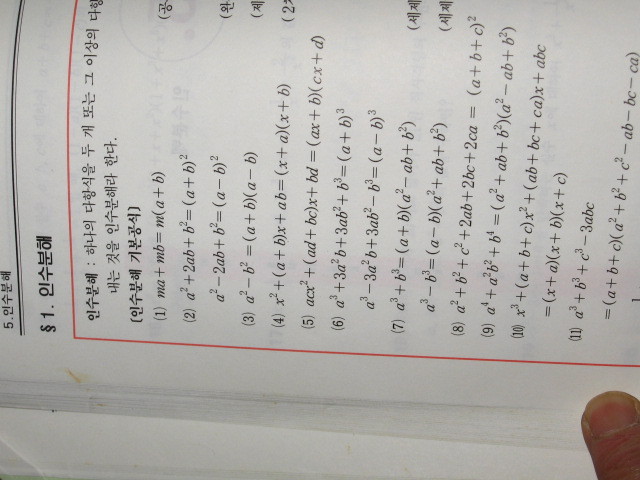 5.인수분해
§ 1. 인수분해
인수분해 : 하나의 다항식을 두 개 또는 그 이상의 다항
내는 것을 인수분해라 한다.
[인수분해 기본공식]
(1) ma+mb=m(a+b) (공
(2) a²+2ab+b²=(a+b)² (완
a²-2ab+b²=(a-b)²
(3) a²-b²=(a+b)(a-b) (제
(4) x²+(a+b)x+ab=(x+a)(x+b) (2차
(5) acx²+(ad+bc)x+bd=(ax+b)(cx+d)
(6) a³+3a²b+3ab²+b³=(a+b)³
a³-3a²b+3ab²-b³=(a-b)³
(7) a³+b³=(a+b)(a²-ab+b²) (세제
a³-b³=(a-b)(a²+ab+b²) (세제
(8) a²+b²+c²+2ab+2bc+2ca = (a+b+c)²
(9) a⁴+a²b²+b⁴=(a²+ab+b²)(a²-ab+b²)
(10) x³+(a+b+c)x²+(ab+bc+ca)x+abc
=(x+a)(x+b)(x+c)
(11) a³+b³+c³-3abc
=(a+b+c)(a²+b²+c²-ab-bc-ca)